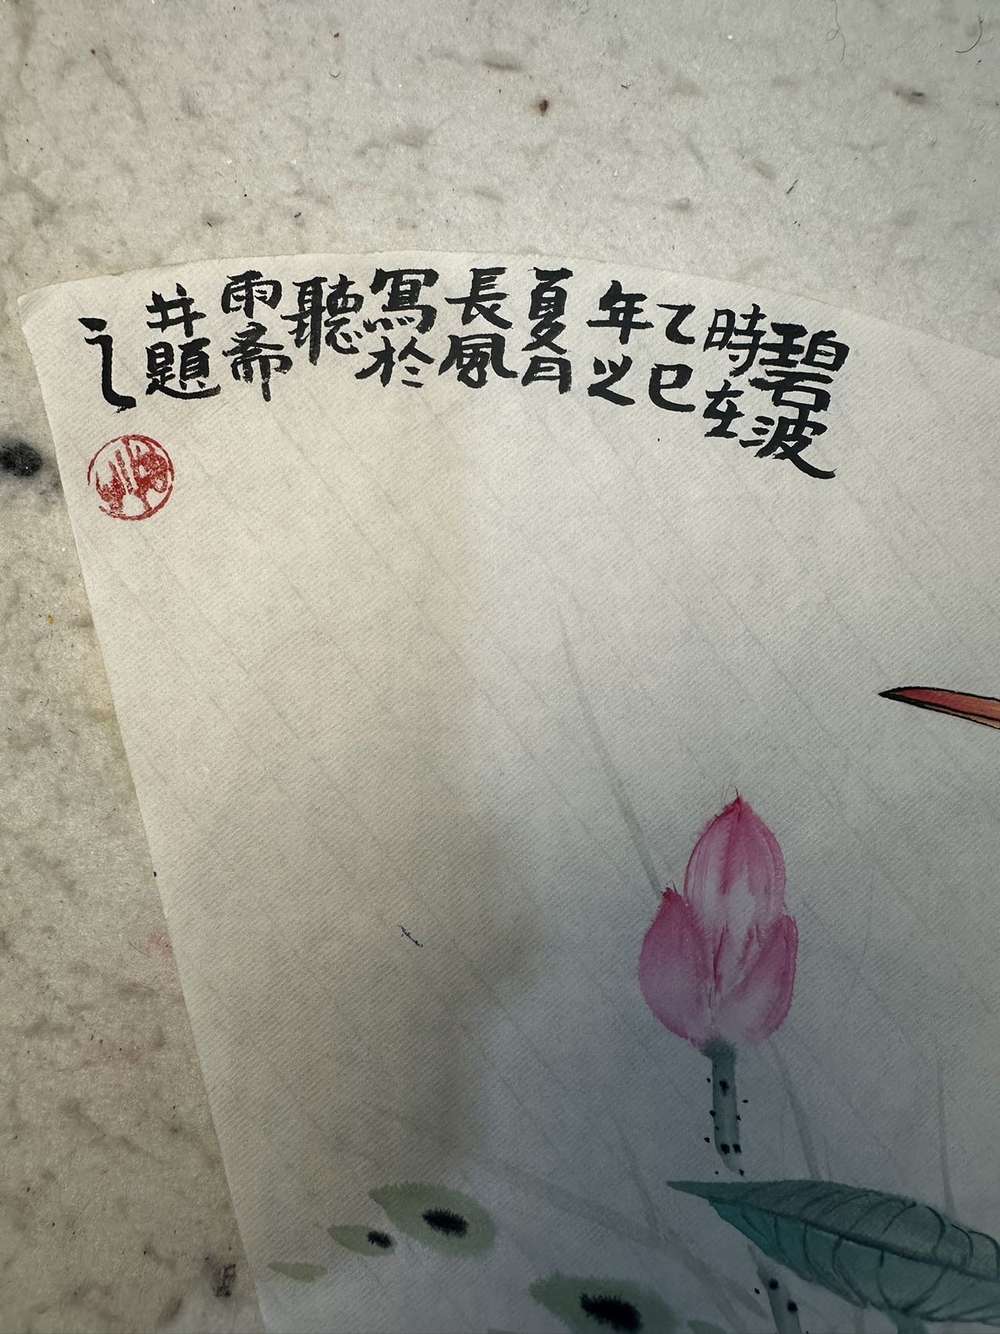 碧波
時在
乙巳
年之
夏月
長風
寫於
聽
雨斋
井題
之